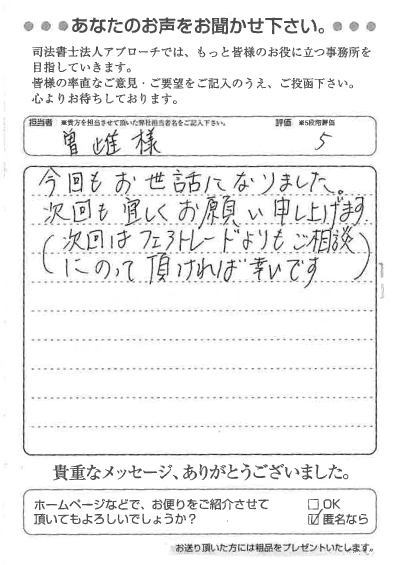 ●●●あなたのお声をお聞かせ下さい。●●●
司法書士法人アプローチでは、もっと皆様のお役に立つ事務所を
目指していきます。
皆様の率直なご意見・ご要望をご記入のうえ、ご投函下さい。
心よりお待ちしております。
担当者 ※貴方を担当させて頂いた弊社担当者名をご記入下さい。 評価 ※5段階評価
曽 様 5
今回もお世話になりました。
次回も宜しくお願い申し上げます
(次回はフェアトレードよりもご相談
にのって頂ければ幸いです)
貴重なメッセージ、ありがとうございました。
ホームページなどで、お便りをご紹介させて
頂いてもよろしいでしょうか?
□OK
☑匿名なら
お送り頂いた方には粗品をプレゼントいたします。